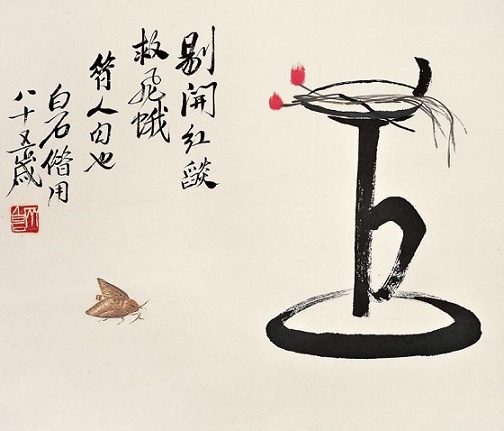 剔開紅燄
救飛蛾
人句也
白石借用
八十五歲